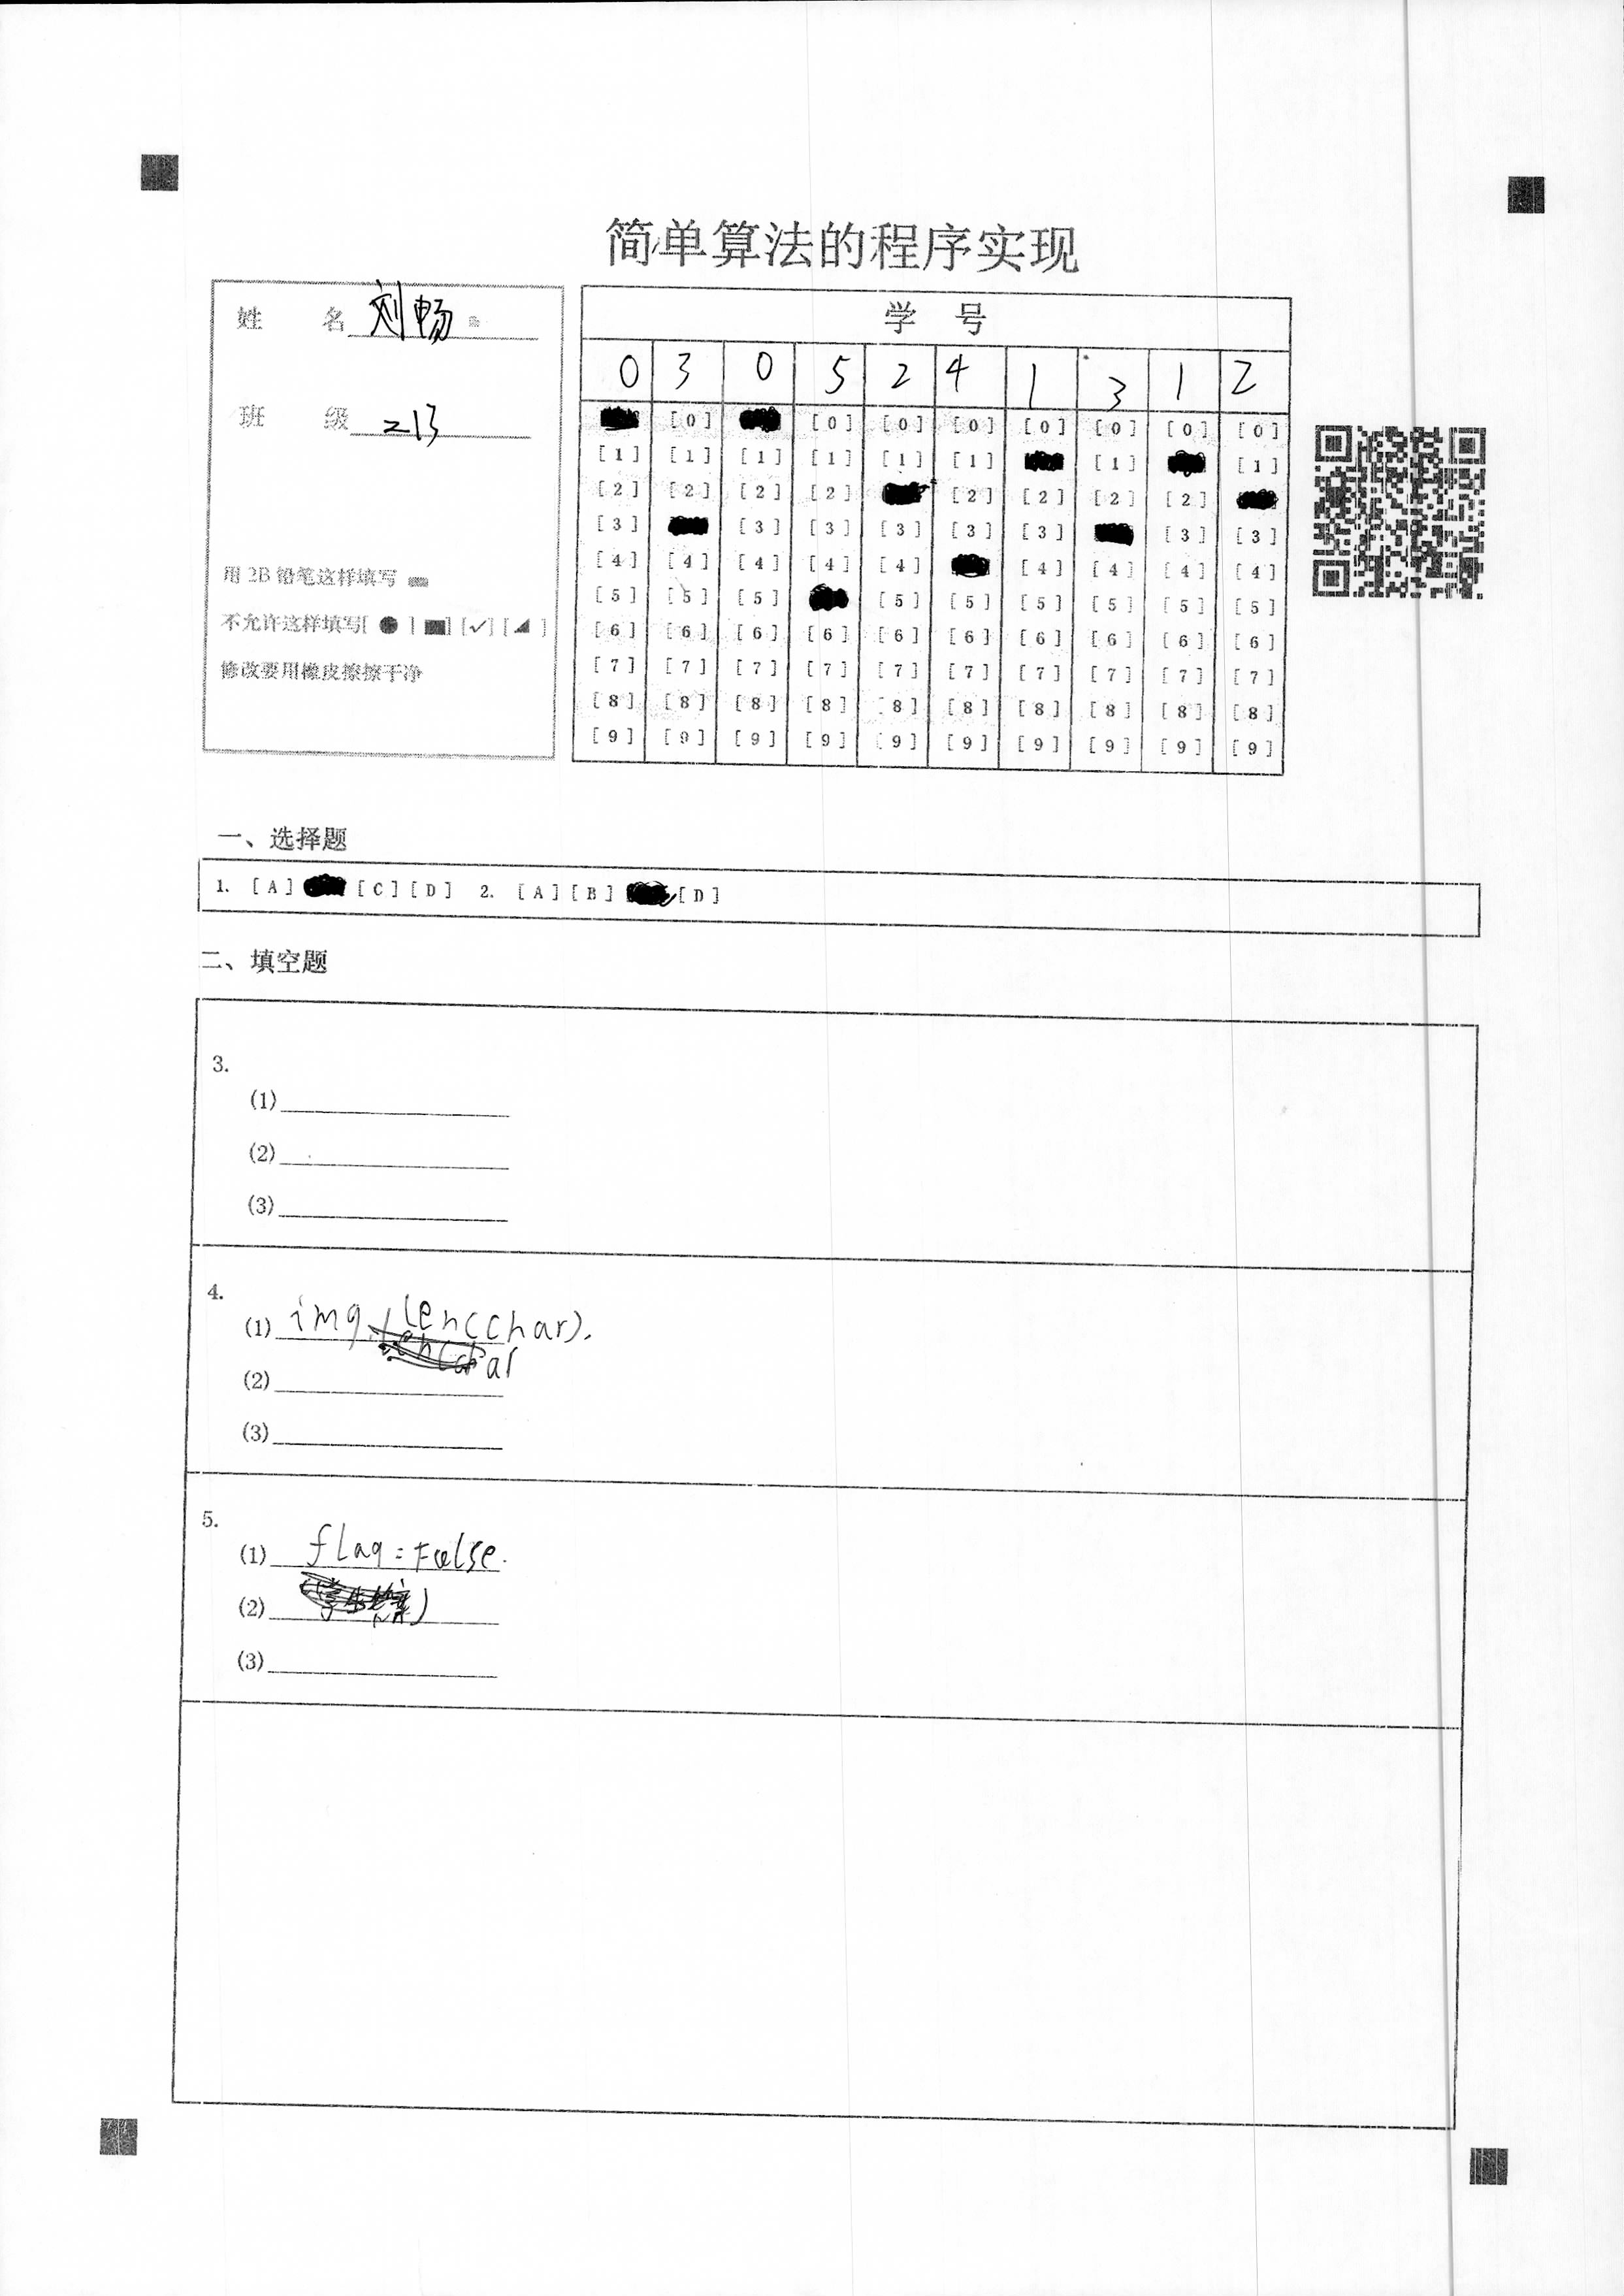 简单算法的程序实现
姓 名 刘畅
班 级 213
用 2B 铅笔这样填写
不允许这样填写[ ● ] [■] [✓] [◢ ]
修改要用橡皮擦擦干净
学 号
0 3 0 5 2 4 1 3 1 2
[0] [0] [0] [0] [0] [0] [0] [0]
[1] [1] [1] [1] [1] [1] [1] [1]
[2] [2] [2] [2] [2] [2] [2] [2]
[3] [3] [3] [3] [3] [3] [3] [3]
[4] [4] [4] [4] [4] [4] [4] [4] [4]
[5] [5] [5] [5] [5] [5] [5] [5] [5]
[6] [6] [6] [6] [6] [6] [6] [6] [6] [6]
[7] [7] [7] [7] [7] [7] [7] [7] [7] [7]
[8] [8] [8] [8] [8] [8] [8] [8] [8] [8]
[9] [9] [9] [9] [9] [9] [9] [9] [9] [9]
一、选择题
1. [A] [C] [D] 2. [A] [B] [D]
二、填空题
3.
(1)
(2)
(3)
4.
(1) img, len(char).
(2)
(3)
5.
(1) flag=False.
(2)
(3)